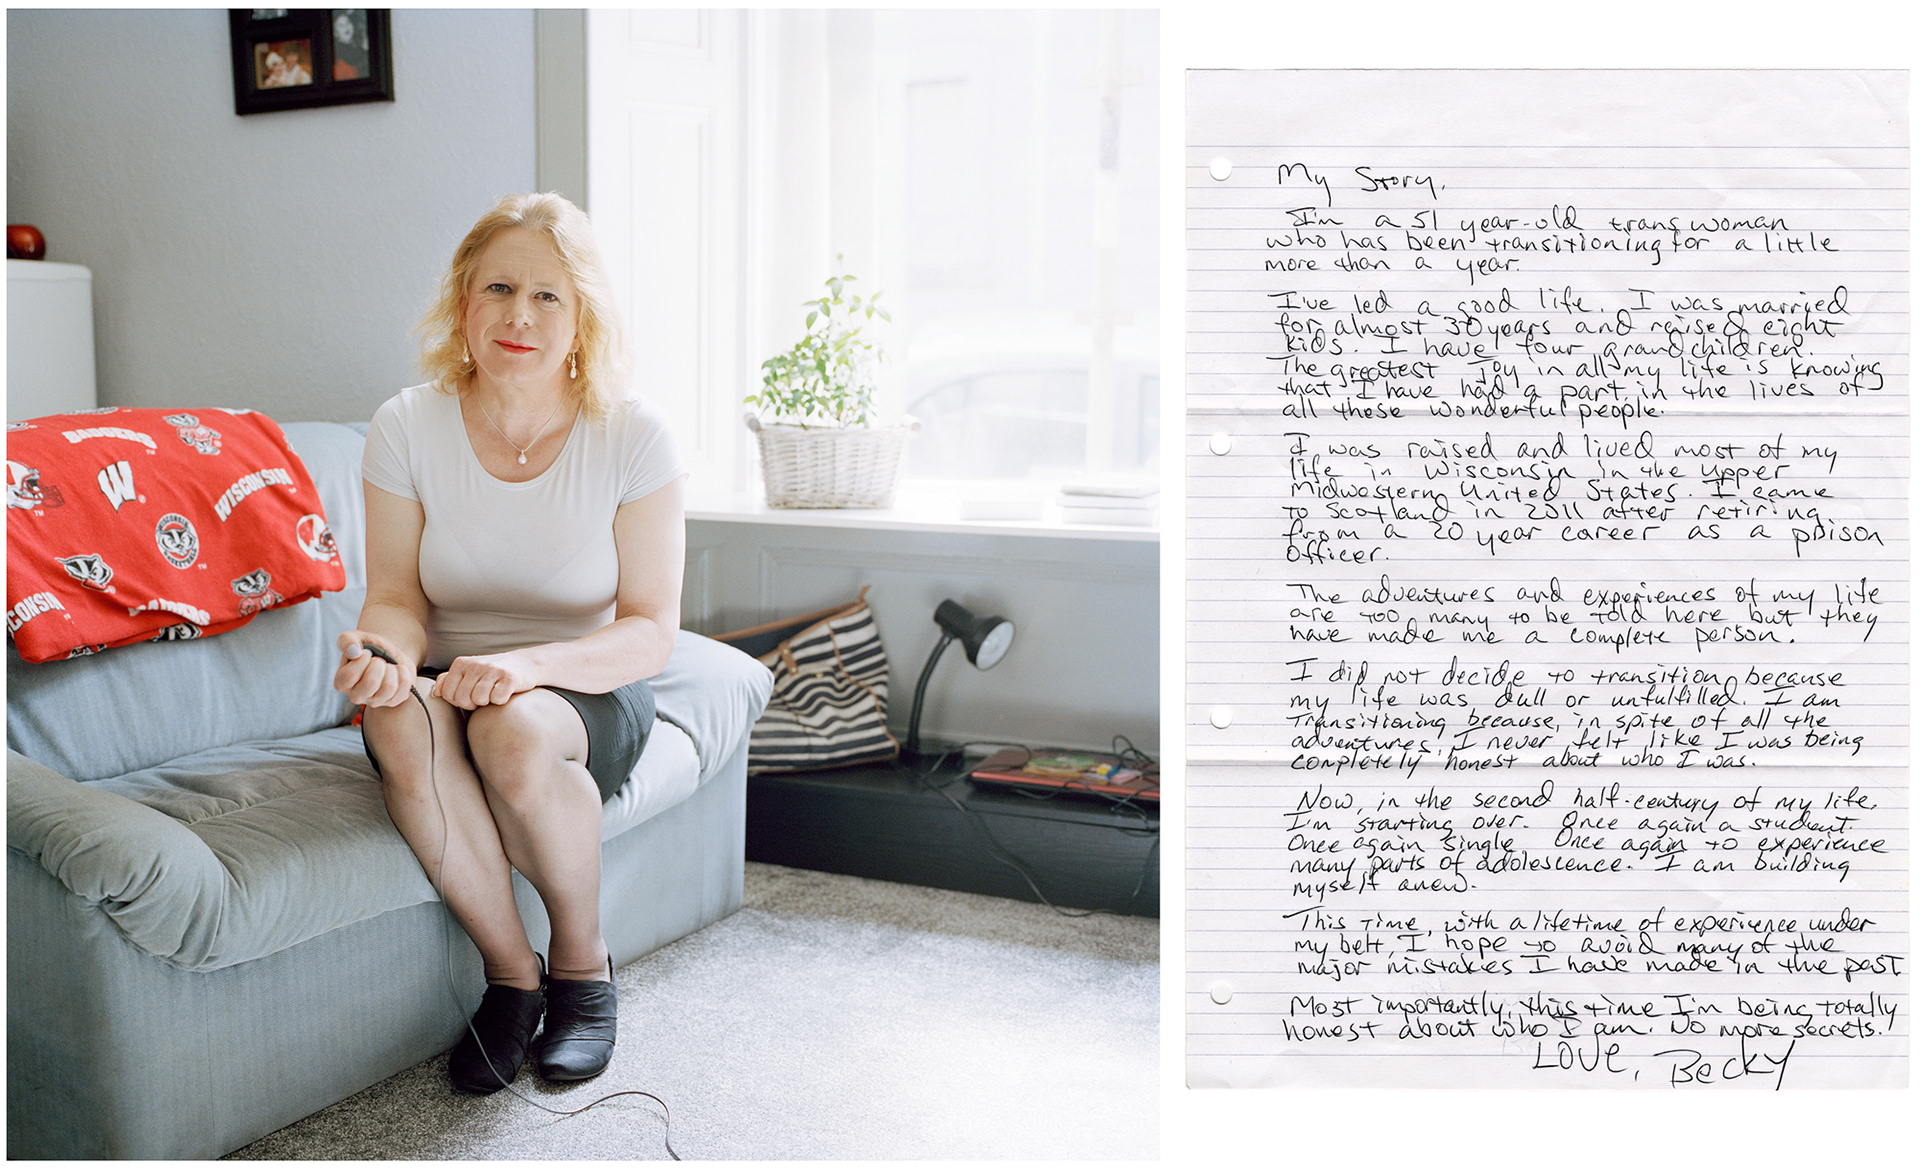 BADGERS
W
WISCONSIN
WISCONSIN
WISCONSIN
BADGERS
My Story.
I'm a 51 year-old trans woman
who has been transitioning for a little
more than a year.
I've led a good life. I was married
for almost 30 years and raised eight
kids. I have four grandchildren.
The greatest joy in all my life is knowing
that I have had a part in the lives of
all these wonderful people.
I was raised and lived most of my
life in Wisconsin in the upper
Midwestern United States. I came
to Scotland in 2011 after retiring
from a 20 year career as a prison
officer.
The adventures and experiences of my life
are too many to be told here but they
have made me a complete person.
I did not decide to transition because
my life was dull or unfulfilled. I am
transitioning because, in spite of all the
adventures, I never felt like I was being
completely honest about who I was.
Now, in the second half-century of my life,
I'm starting over. Once again a student.
Once again single. Once again to experience
many parts of adolescence. I am building
myself anew.
This time, with a lifetime of experience under
my belt, I hope to avoid many of the
major mistakes I have made in the past
Most importantly, this time I'm being totally
honest about who I am. No more secrets.
Love, Becky